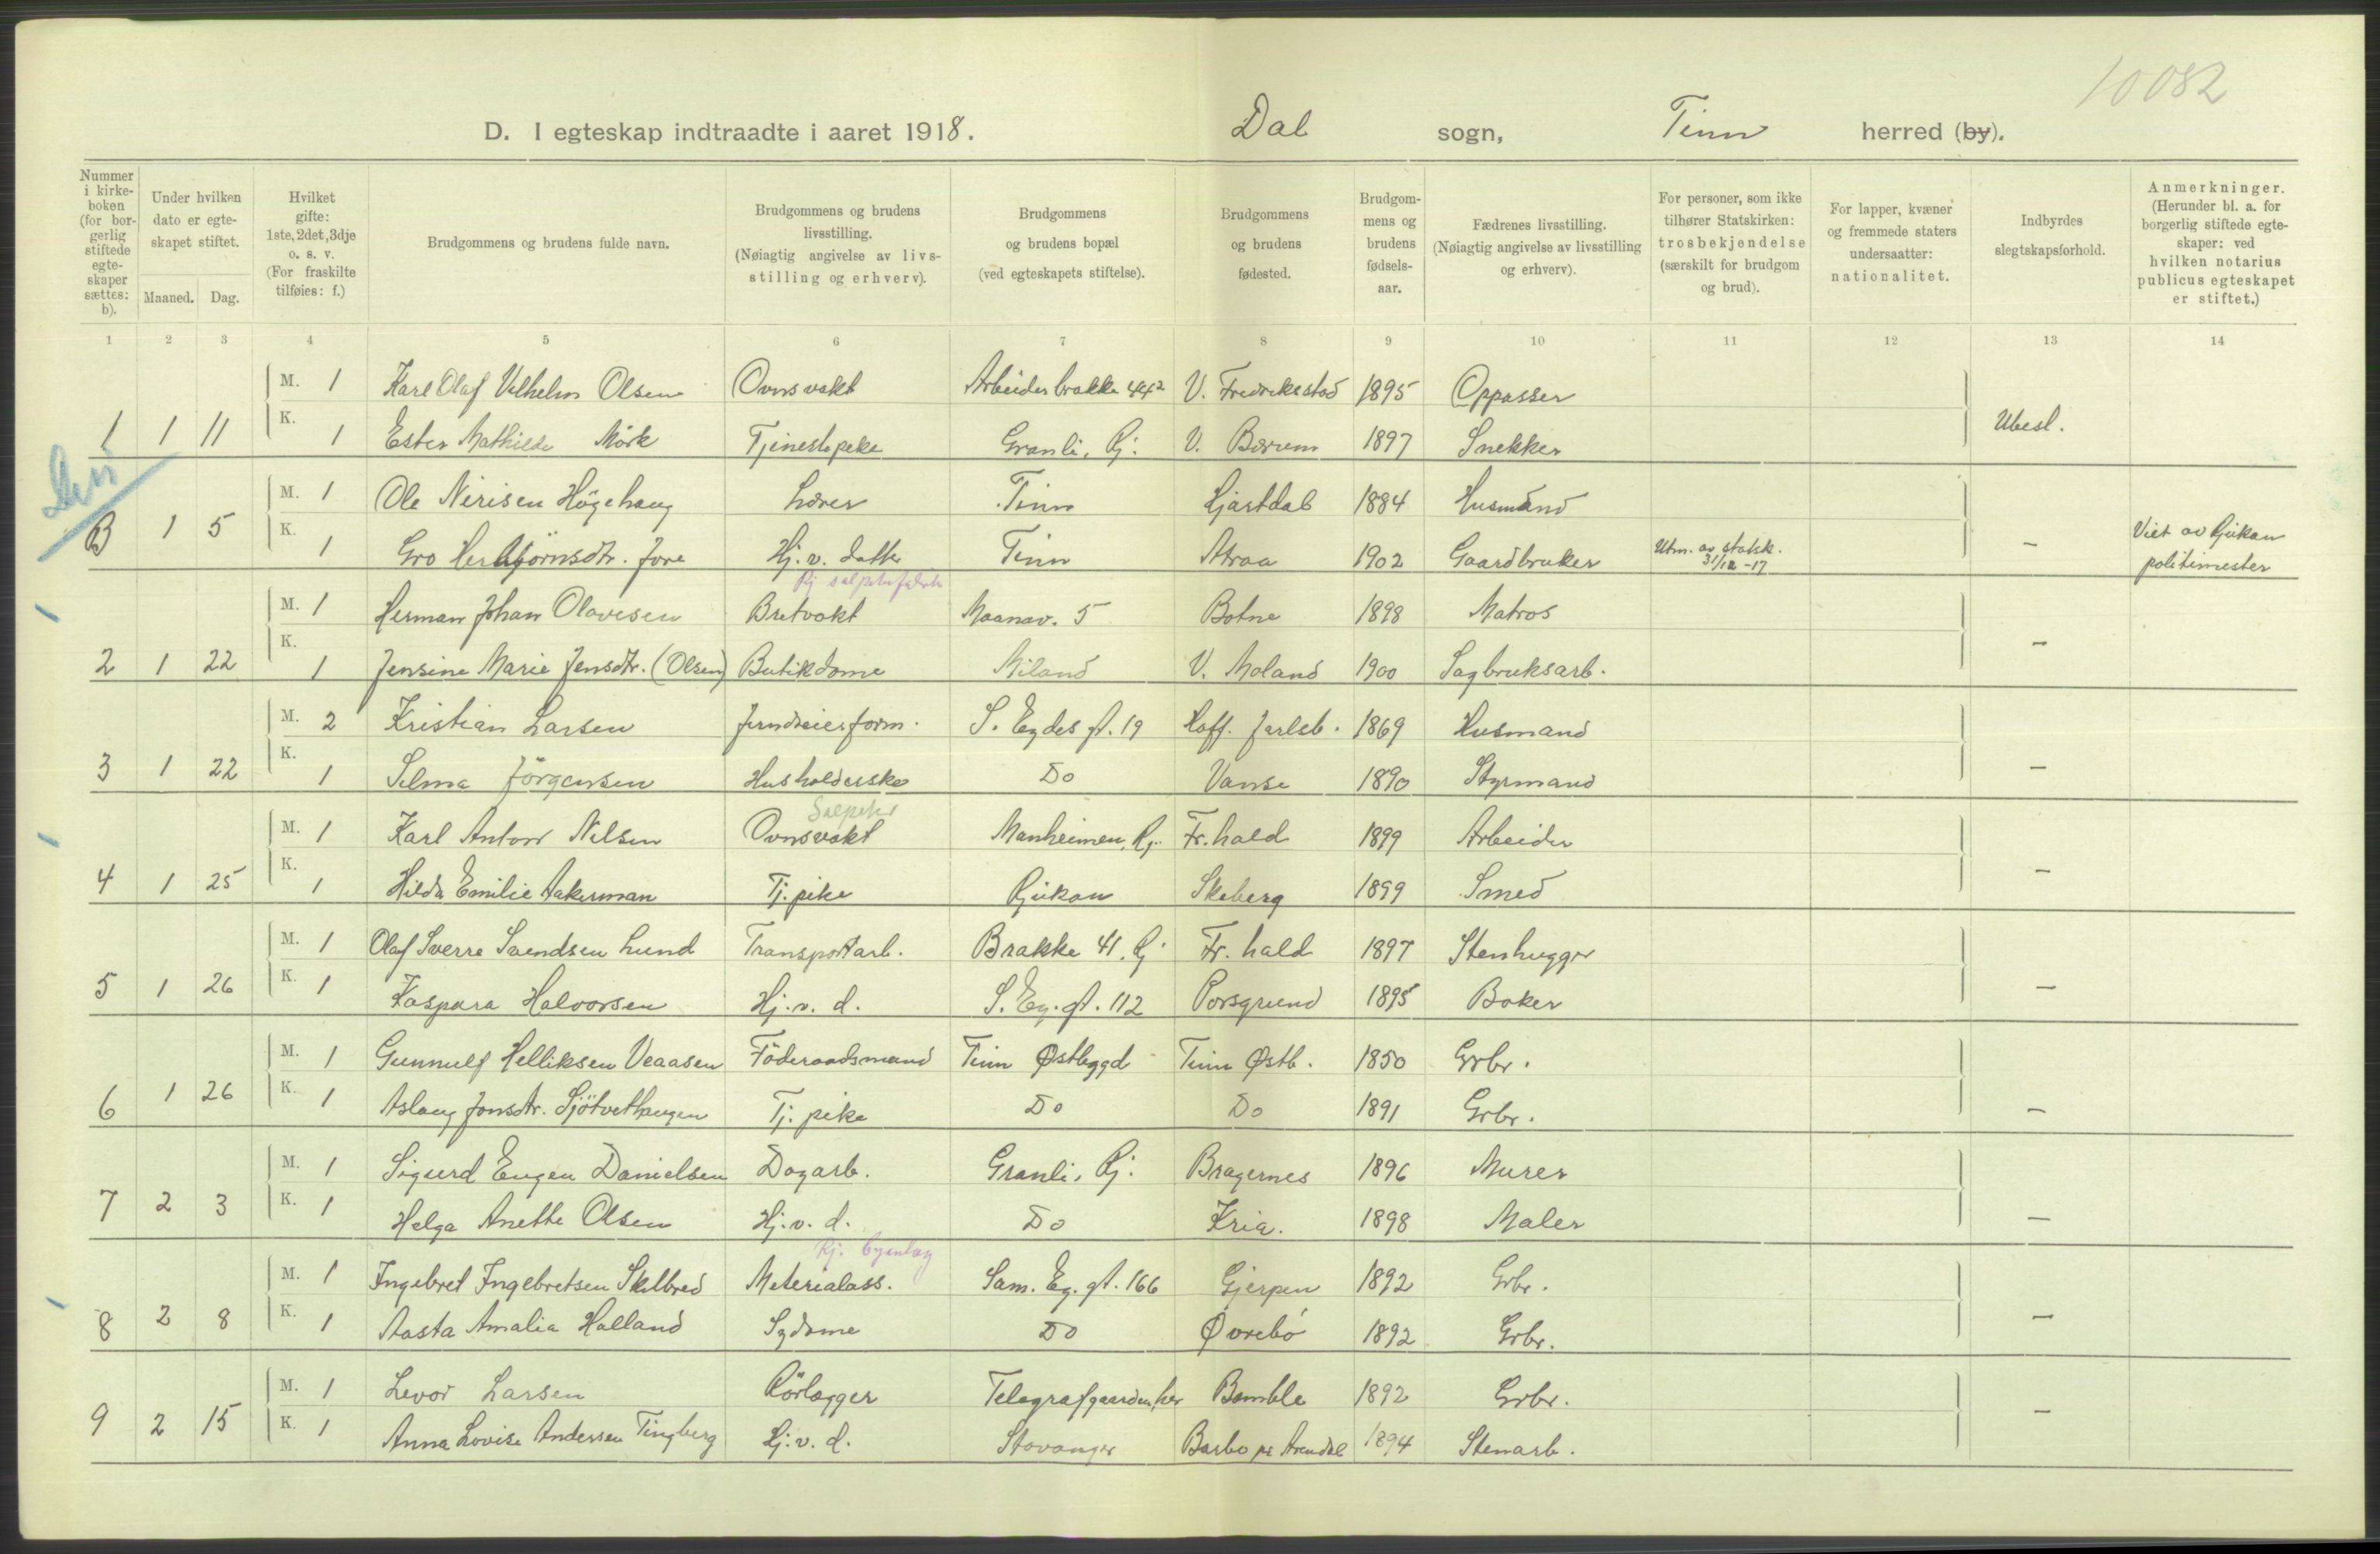 10082
D. I egteskap indtraadte i aaret 1918. Dal sogn, Tinn herred (by).
Nummer i kirkeboken (for borgerlig stiftede egteskaper sættes: b).
Under hvilken dato er egteskapet stiftet.
Maaned. Dag.
Hvilket gifte: 1ste, 2det, 3dje o. s. v. (For fraskilte tilføies: f.)
Brudgommens og brudens fulde navn.
Brudgommens og brudens livsstilling. (Nøiagtig angivelse av livsstilling og erhverv).
Brudgommens og brudens bopæl (ved egteskapets stiftelse).
Brudgommens og brudens fødested.
Brudgommens og brudens fødselsaar.
Fædrenes livsstilling. (Nøiagtig angivelse av livsstilling og erhverv).
For personer, som ikke tilhører Statskirken: trosbekjendelse (særskilt for brudgom og brud).
For lapper, kvæner og fremmede staters undersaatter: nationalitet.
Indbyrdes slegtskapsforhold.
Anmerkninger. (Herunder bl. a. for borgerlig stiftede egteskaper: ved hvilken notarius publicus egteskapet er stiftet.)
1 2 3 4 5 6 7 8 9 10 11 12 13 14
M. 1 Karl Olaf Vilhelm Olsen Ovnsvakt Arbeiderbrakke 442 V. Fredrikstad 1895 Oppasser
1 1 11 K. 1 Ester Mathilde Mörk Tjenestepike Granli, Rj. V. Bærum 1897 Snekker Ubesl.
M. 1 Ole Nirisen Högehaug Lærer Tinn Hjartdal 1884 Husmand
B 1 5 K. 1 Gro Herbjörnsdtr. Jore Hj. v. datter Tinn Atraa 1902 Gaardbruker Utm. av statsk. 31/12 -17 — Viet av Rjukan politimester
Rj salpeterfabrik
M. 1 Herman Johan Olavesen Bretvakt Maanav. 5 Botne 1898 Matros
2 1 22 K. 1 Jensine Marie Jensdtr. (Olsen) Butikdame Miland V. Moland 1900 Sagbruksarb. —
M. 2 Kristian Larsen Jerndreierform. S. Eydes gt. 19 Hoff. Jarlsb. 1869 Husmand
3 1 22 K. 1 Selma Jörgensen Husholderske Do Vanse 1890 Styrmand —
Salpeter
M. 1 Karl Anton Nilsen Ovnsvakt Manheimen, Rj. Fr. hald 1899 Arbeider
4 1 25 K. 1 Hilda Emilie Aakerman Tj. pike Rjukan Skeberg 1899 Smed —
M. 1 Olaf Sverre Svendsen Lund Transportarb. Brakke 41, Rj Fr. hald 1897 Stenhugger
5 1 26 K. 1 Kaspara Halvorsen Hj. v. d. S. Ey. gt. 112 Porsgrund 1895 Baker —
M. 1 Gunnulf Helliksen Veaasen Föderaadsmand Tinn Østbygd Tinn Østb. 1850 Grbr.
6 1 26 K. 1 Aslaug Jonsdtr. Sjötvethaugen Tj. pike Do Do 1891 Grbr. —
M. 1 Sigurd Eugen Danielsen Dagarb. Granli, Rj. Bragernes 1896 Murer
7 2 3 K. 1 Helga Anette Olsen Hj. v. d. Do Kria. 1898 Maler —
Rj. byanlæg
M. 1 Ingebret Ingebretsen Skilbred Materialass. Sam. Ey. gt. 166 Gjerpen 1892 Grbr.
8 2 8 K. 1 Aasta Amalia Holland Sydame Do Øvrebö 1892 Grbr. —
M. 1 Levor Larsen Rörlægger Telegrafgaarden, her Bamble 1892 Grbr.
9 2 15 K. 1 Anna Lovise Andersen Tingberg Hj. v. d. Stavanger Barbo pr Arendal 1894 Stenarb. —